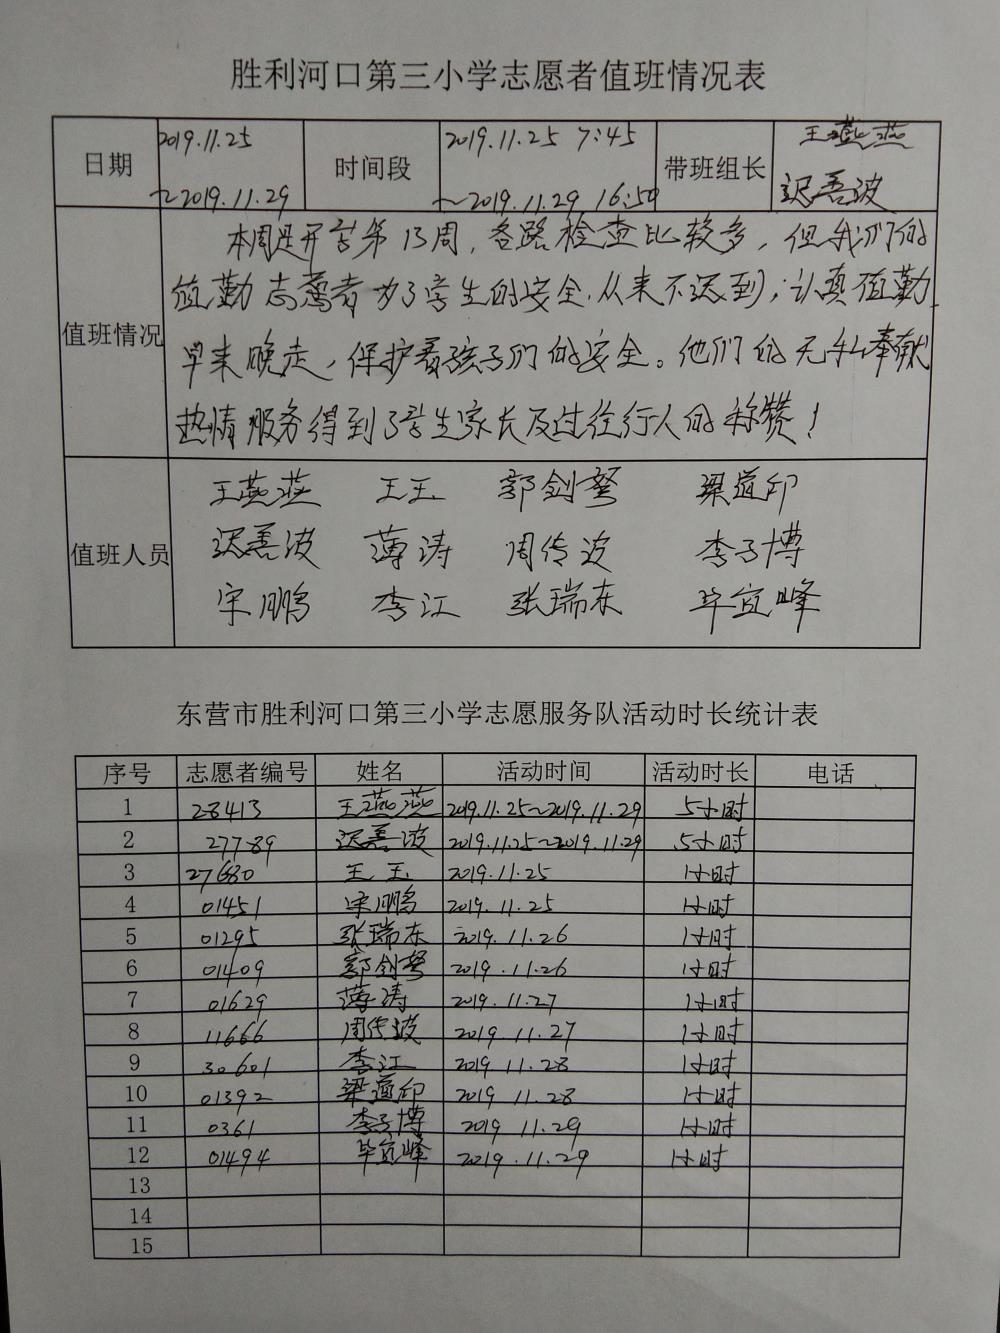 胜利河口第三小学志愿者值班情况表
日期 2019.11.25 ~2019.11.29 时间段 2019.11.25 7:45 ~2019.11.29 16:50 带班组长 王燕燕 迟善波
值班情况
本周是开学第13周，各路检查比较多，但我们的
值勤志愿者为了学生的安全，从来不迟到，认真值勤
早来晚走，保护着孩子们的安全。他们的无私奉献
热情服务得到了学生家长及过往行人的称赞！
值班人员
王燕燕 王玉 郭剑 梁道印
迟善波 薄涛 周传波 李子博
宋鹏 李江 张瑞东 毕宜峰
东营市胜利河口第三小学志愿服务队活动时长统计表
序号 志愿者编号 姓名 活动时间 活动时长 电话
1 28413 王燕燕 2019.11.25~2019.11.29 5小时
2 27789 迟善波 2019.11.25~2019.11.29 5小时
3 27680 王玉 2019.11.25 1小时
4 01451 宋鹏 2019.11.25 1小时
5 01295 张瑞东 2019.11.26 1小时
6 01409 郭剑 2019.11.26 1小时
7 01629 薄涛 2019.11.27 1小时
8 11666 周传波 2019.11.27 1小时
9 30601 李江 2019.11.28 1小时
10 01392 梁道印 2019.11.28 1小时
11 0361 李子博 2019.11.29 1小时
12 01494 毕宜峰 2019.11.29 1小时
13
14
15